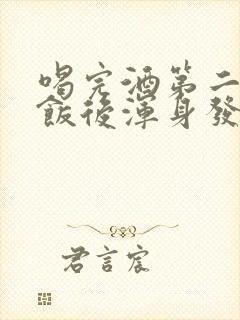 喝完酒第二
飯後渾身發
君言宸